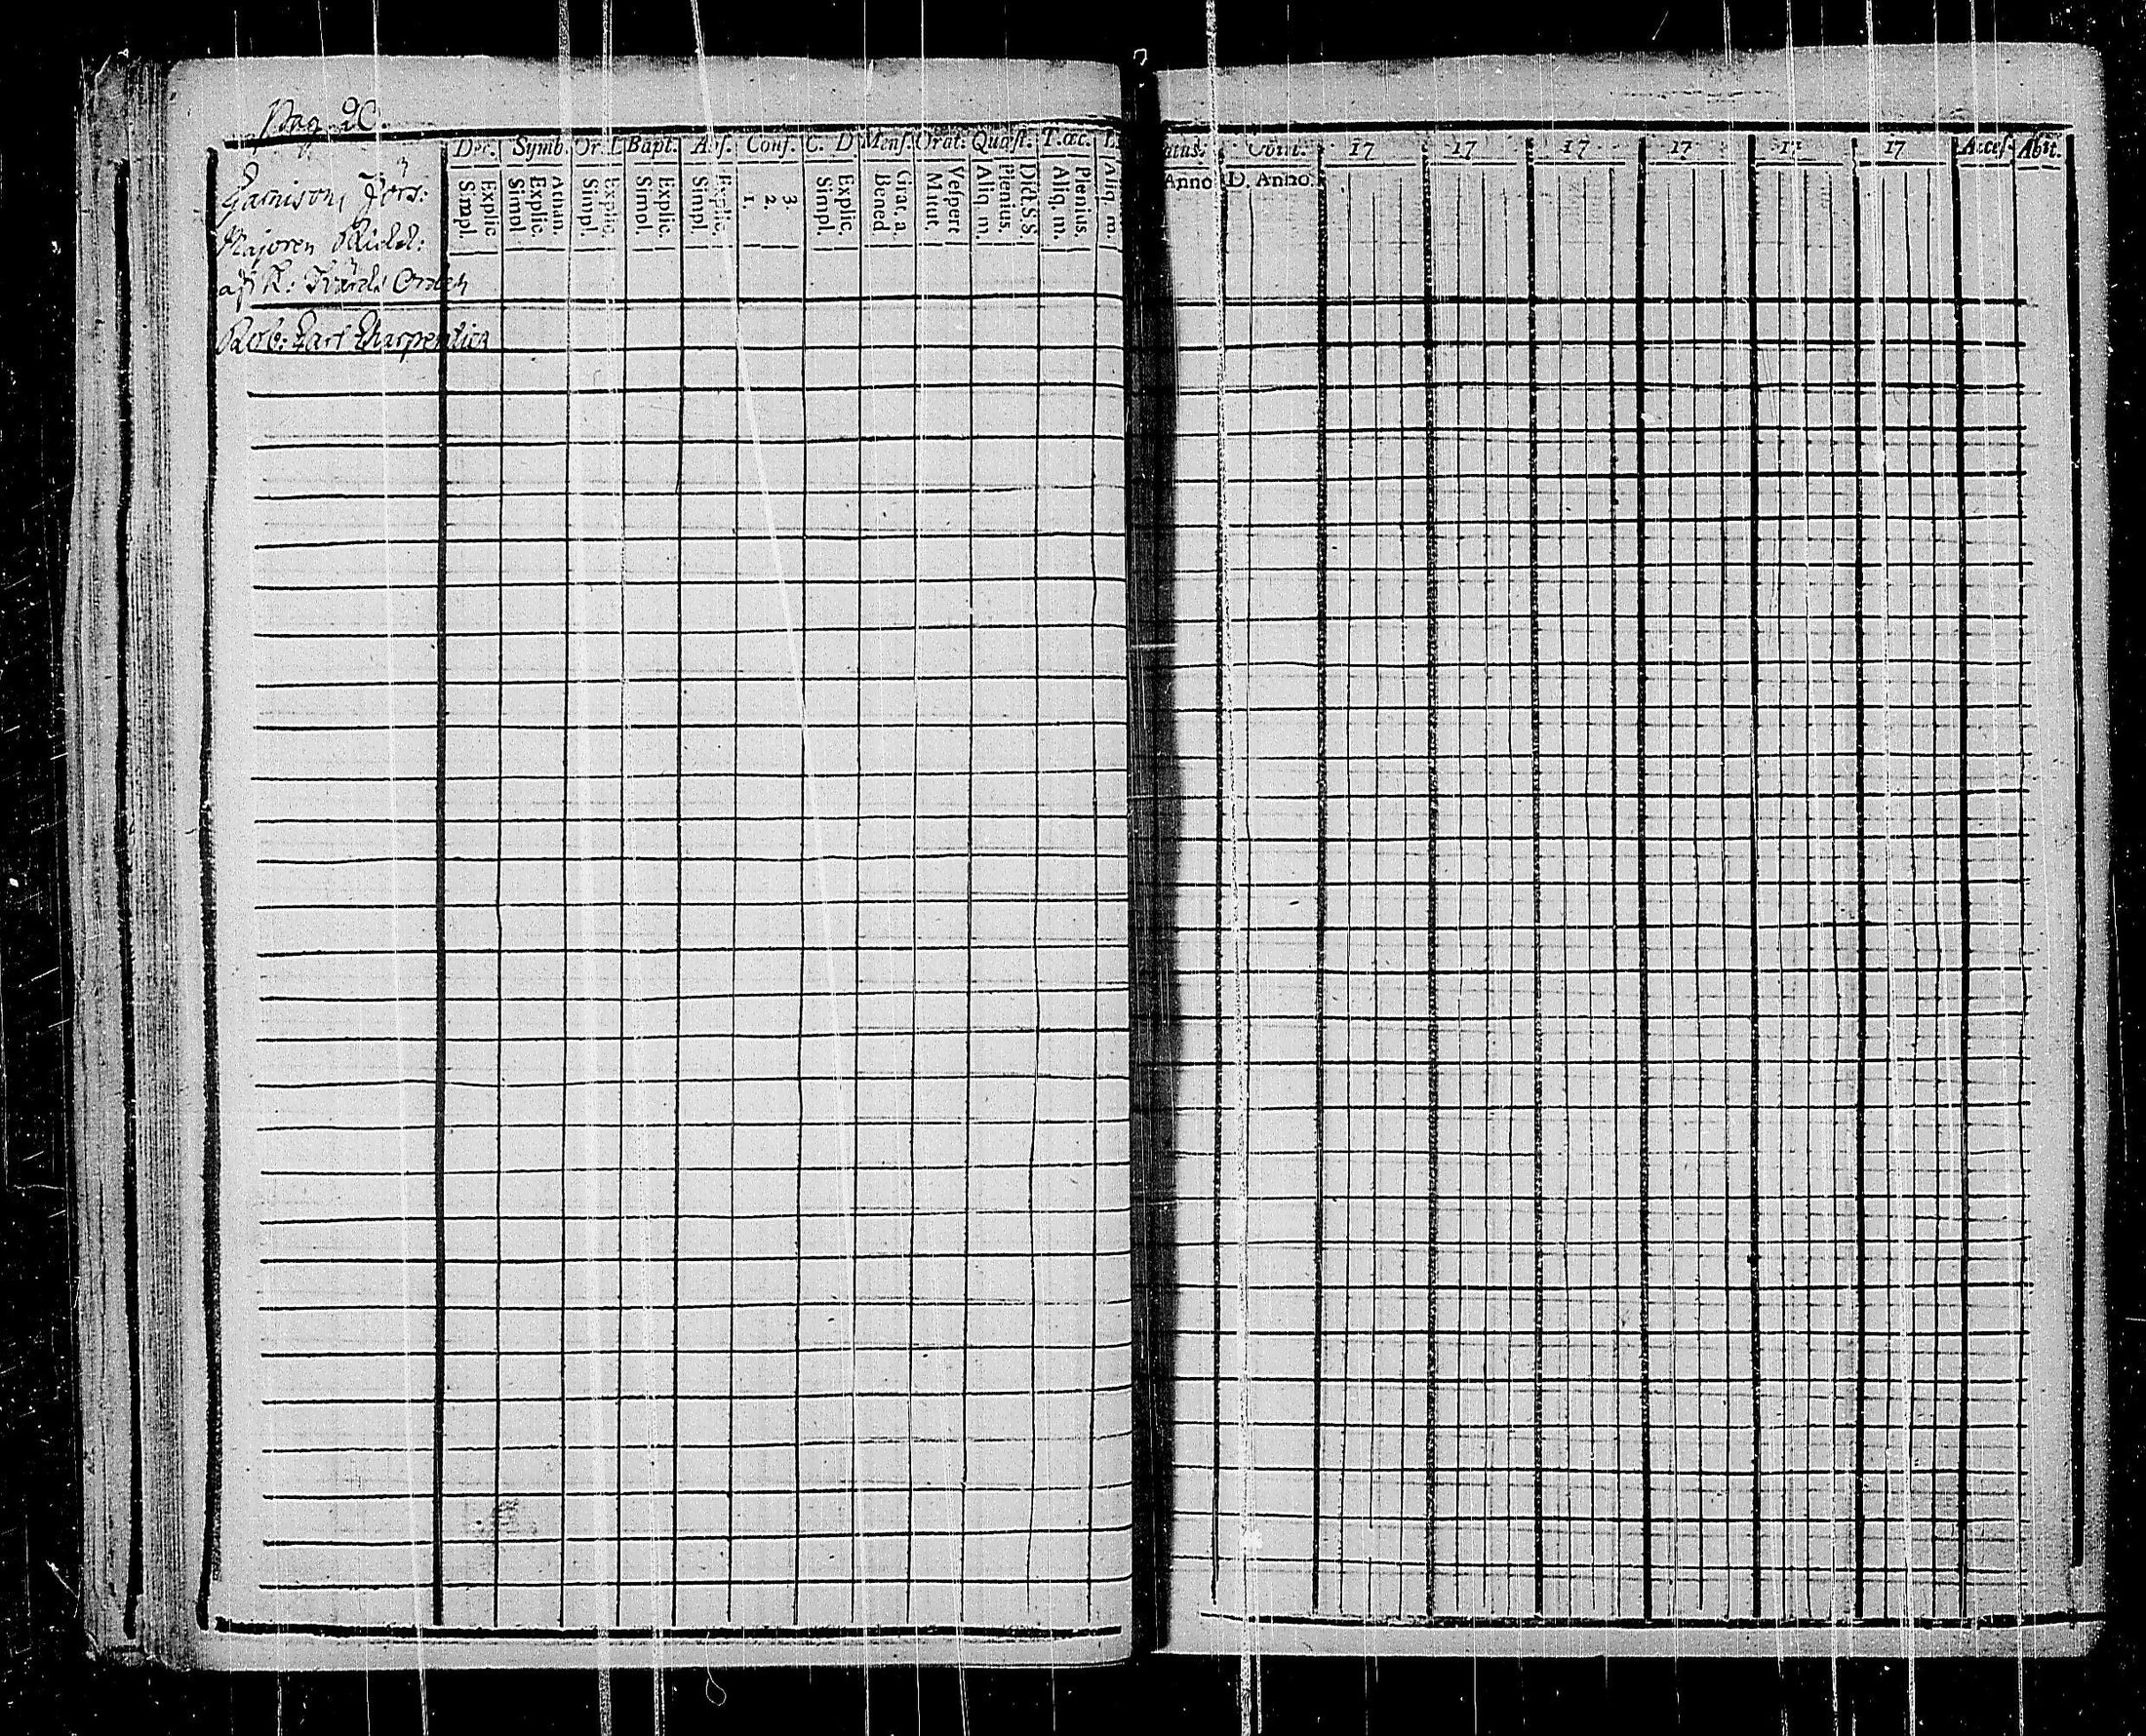 Pag 20.
Dec. Symb. Or. D Bapt: Abs. Conf. C. D Mens. Orat: Quæst. T. œc.
Simpl. Explic Simpl. Explic. Athan. Simpl. Explic. Simpl. Explic. Simpl Explic. 1. 2. 3. Simpl. Explic. Bened Grat. a. Matut. Vesper. Aliq m. Plenius. Dict. S.S Aliq. m. Plenius. Aliq. m.
Majoren Ridd:
af K: Svärds Orden
Carl Charpentier
atus. Com. 17 17 17 17 17 17 Acces. Abit.
Anno D. Anno.